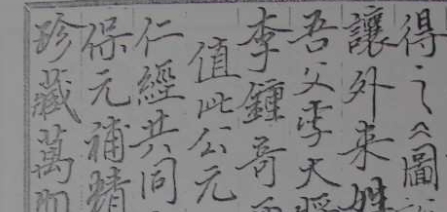 得之《圖
讓外来姓
吾父李大
李鍾奇
值此公元
仁經共同
保元補精
珍藏萬